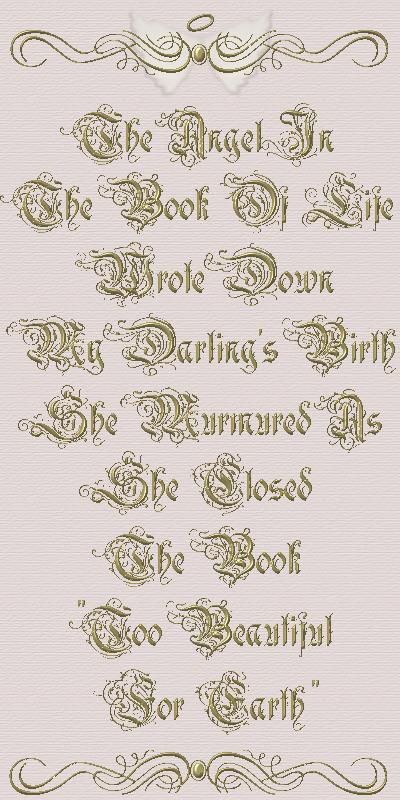 The Angel In
The Book Of Life
Wrote Down
My Darling's Birth
She Murmured As
She Closed
The Book
"Too Beautiful
For Earth"